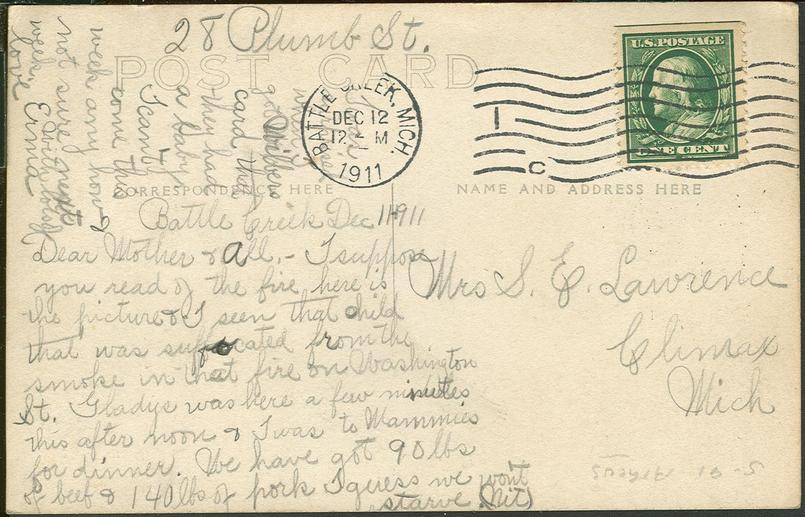 28 Plumb St.
POST CARD
U.S. POSTAGE
ONE CENT
BATTLE CREEK, MICH.
DEC 12
12 - M
1911
1
C
CORRESPONDENCE HERE
NAME AND ADDRESS HERE
Battle Creek Dec 11-1911
Dear Mother & all,- I suppose
you read of the fire here is
the picture & I seen that child
that was suffocated from the
smoke in that fire on Washington
St. Gladys was here a few minutes
this after noon & I was to Mammies
for dinner. We have got 90 lbs
of beef & 140 lbs of pork I guess we won't
starve (Nit)
Mrs S. E. Lawrence
Climax
Mich
got Wilbers
card that
they had
a baby
I can't
come this
week any how &
not sure next
week,
love Ernia